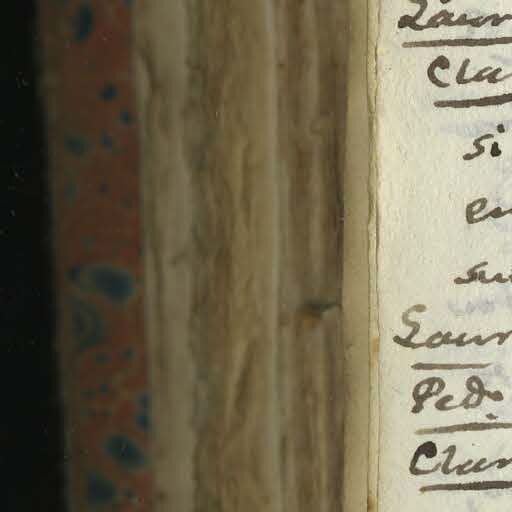 Laur
Cla
si
en
su
Laur
Ped.
Clar